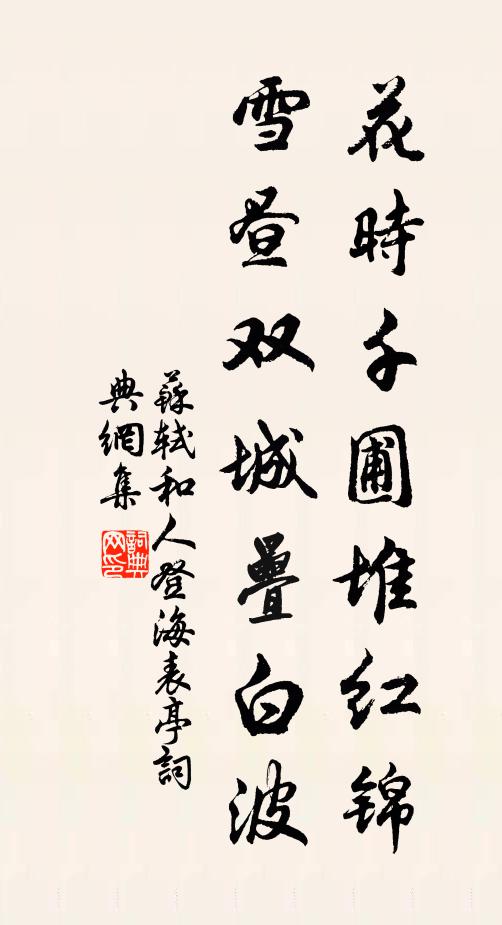 花時千圃堆红锦
雪昼双城疊白波
蘇軾和人登海表亭詞
典網集
詞典网印